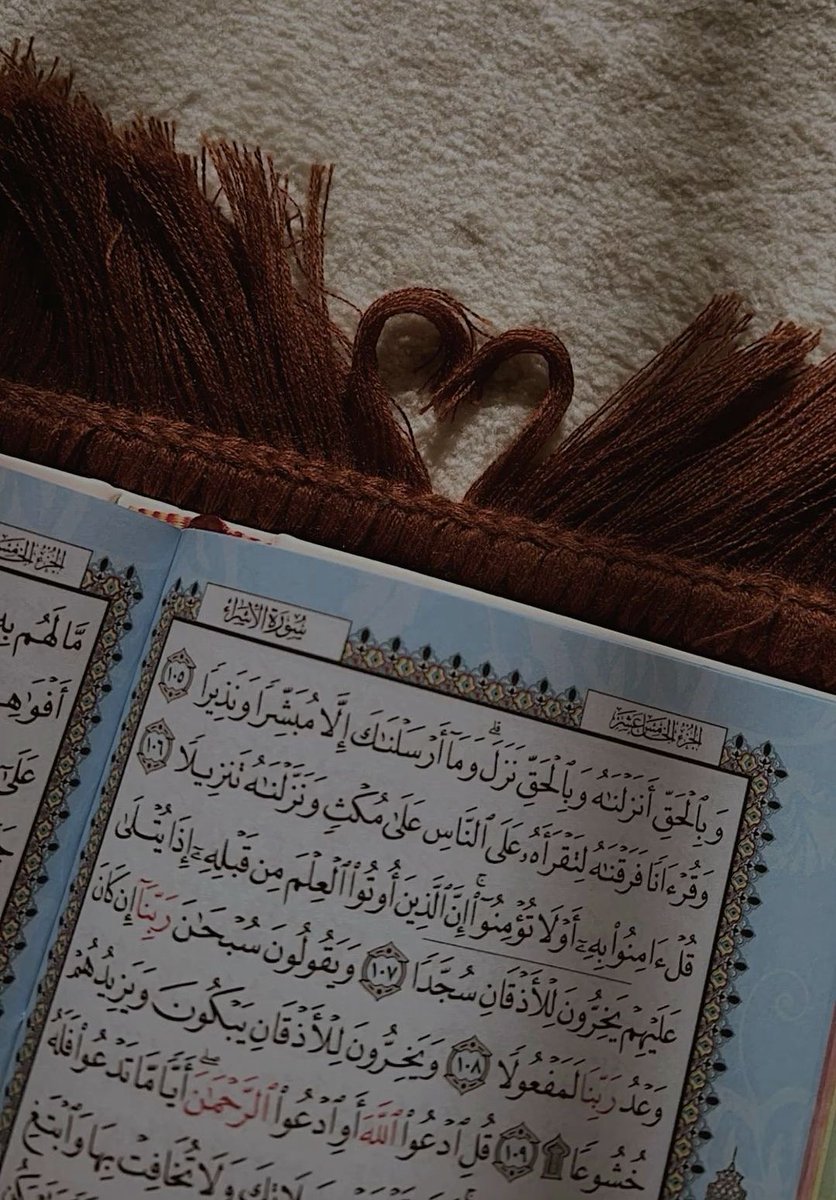 الجزء الخامس عشر
سُورَةُ الإِسْرَاءِ
وَبِٱلْحَقِّ أَنزَلْنَٰهُ وَبِٱلْحَقِّ نَزَلَ ۗ وَمَآ أَرْسَلْنَٰكَ إِلَّا مُبَشِّرًا وَنَذِيرًا ١٠٥
وَقُرْءَانًا فَرَقْنَٰهُ لِتَقْرَأَهُۥ عَلَى ٱلنَّاسِ عَلَىٰ مُكْثٍ وَنَزَّلْنَٰهُ تَنزِيلًا ١٠٦
قُلْ ءَامِنُوا۟ بِهِۦٓ أَوْ لَا تُؤْمِنُوٓا۟ ۚ إِنَّ ٱلَّذِينَ أُوتُوا۟ ٱلْعِلْمَ مِن قَبْلِهِۦٓ إِذَا يُتْلَىٰ
عَلَيْهِمْ يَخِرُّونَ لِلْأَذْقَانِ سُجَّدًا ١٠٧ وَيَقُولُونَ سُبْحَٰنَ رَبِّنَآ إِن كَانَ
وَعْدُ رَبِّنَا لَمَفْعُولًا ١٠٨ وَيَخِرُّونَ لِلْأَذْقَانِ يَبْكُونَ وَيَزِيدُهُمْ
خُشُوعًا ۩ ١٠٩ قُلِ ٱدْعُوا۟ ٱللَّهَ أَوِ ٱدْعُوا۟ ٱلرَّحْمَٰنَ ۖ أَيًّا مَّا تَدْعُوا۟ فَلَهُ
وَلَا تُخَافِتْ بِهَا وَٱبْتَغِ
الجزء الخامس
مَّا لَهُم بِهِ
أَفْوَٰهِ
عَلَىٰٓ